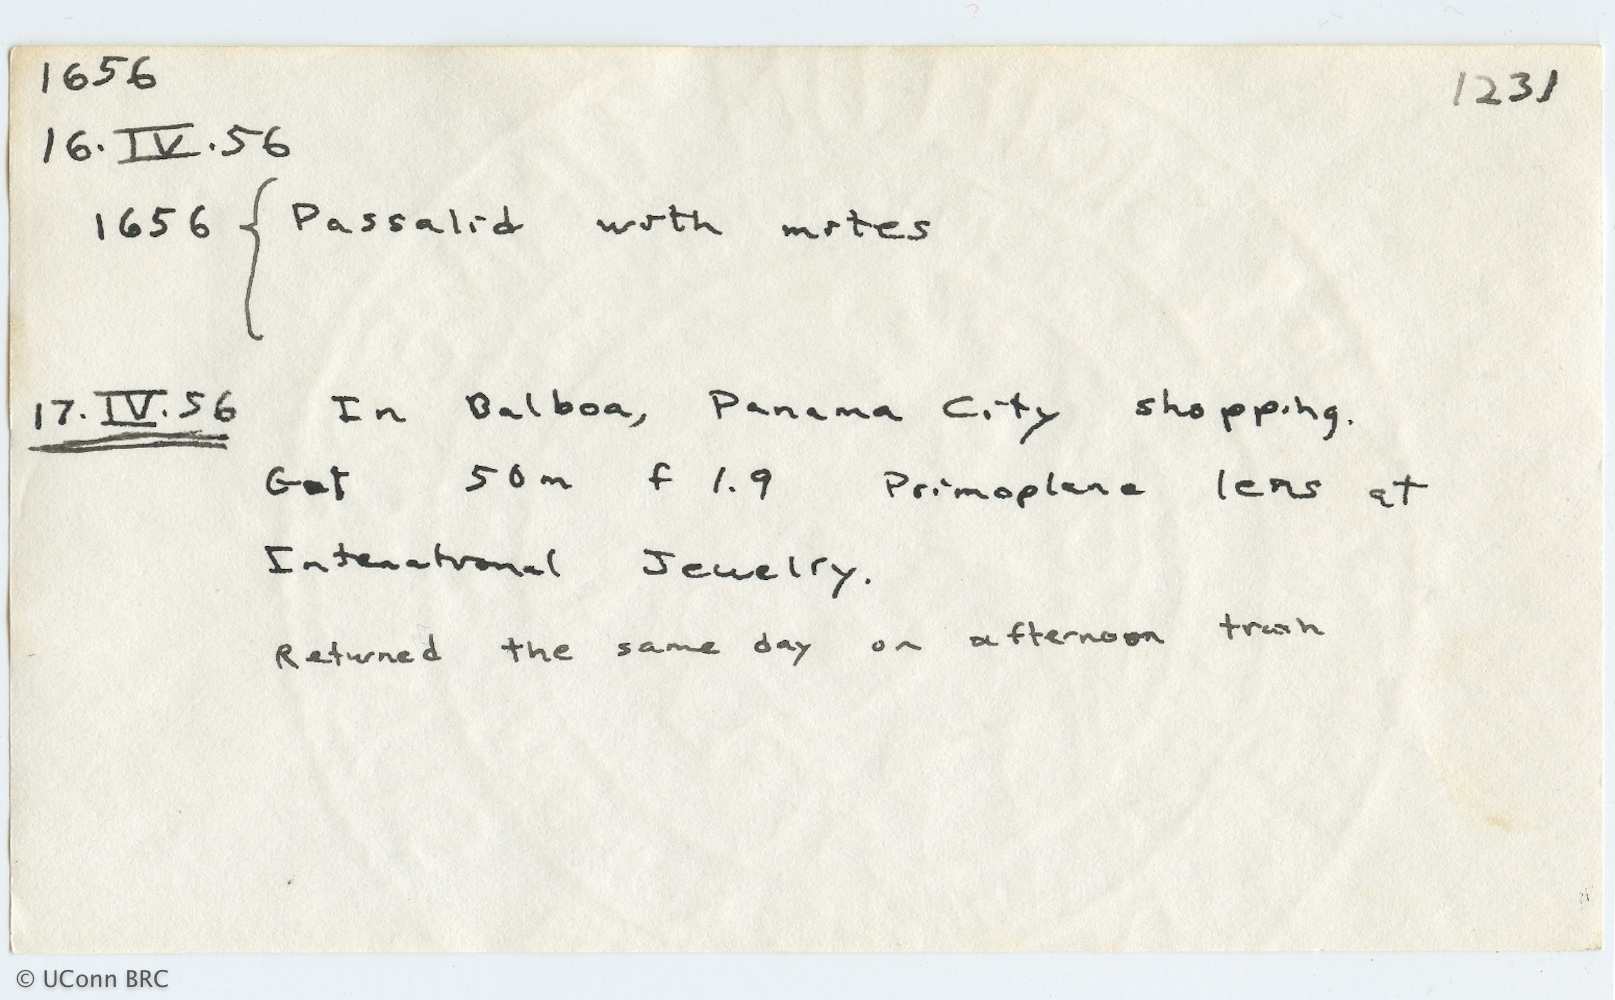 1656
1231
16.IV.56
1656 { Passalid with mites
17.IV.56 In Balboa, Panama City shopping.
Got 50m f 1.9 Primoplane lens at
Intenational Jewelry.
Returned the same day on afternoon train
© UConn BRC